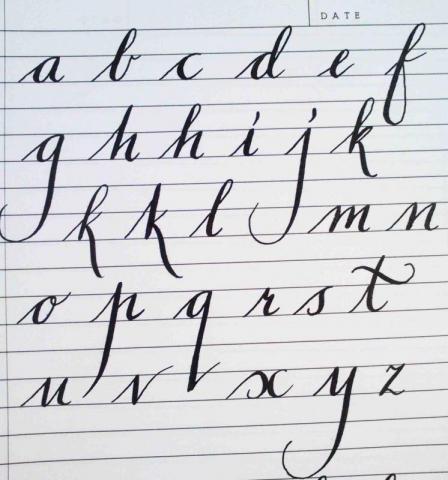 DATE
a b c d e f
g h h i j k
k k l m n
o p q r s t
u v x y z